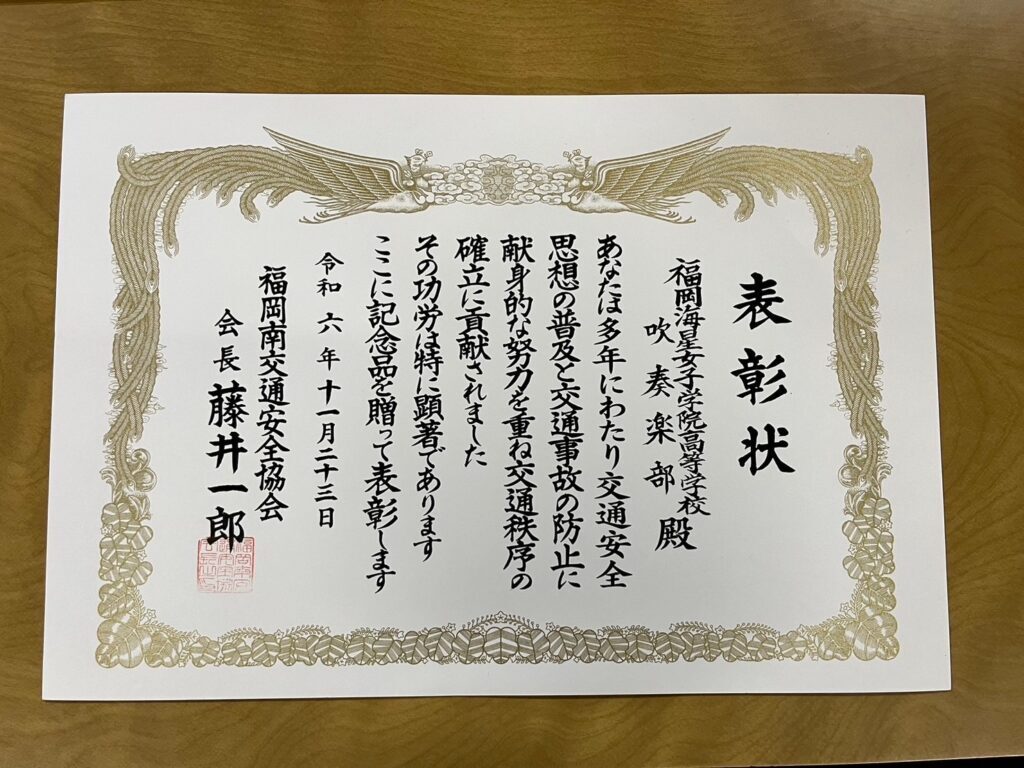 表彰状
福岡海星女子学院高等学校
吹奏楽部 殿
あなたは多年にわたり交通安全
思想の普及と交通事故の防止に
献身的な努力を重ね交通秩序の
確立に貢献されました
その功労は特に顕著であります
ここに記念品を贈って表彰します
令和六年十一月二十三日
福岡南交通安全協会
会長 藤井一郎